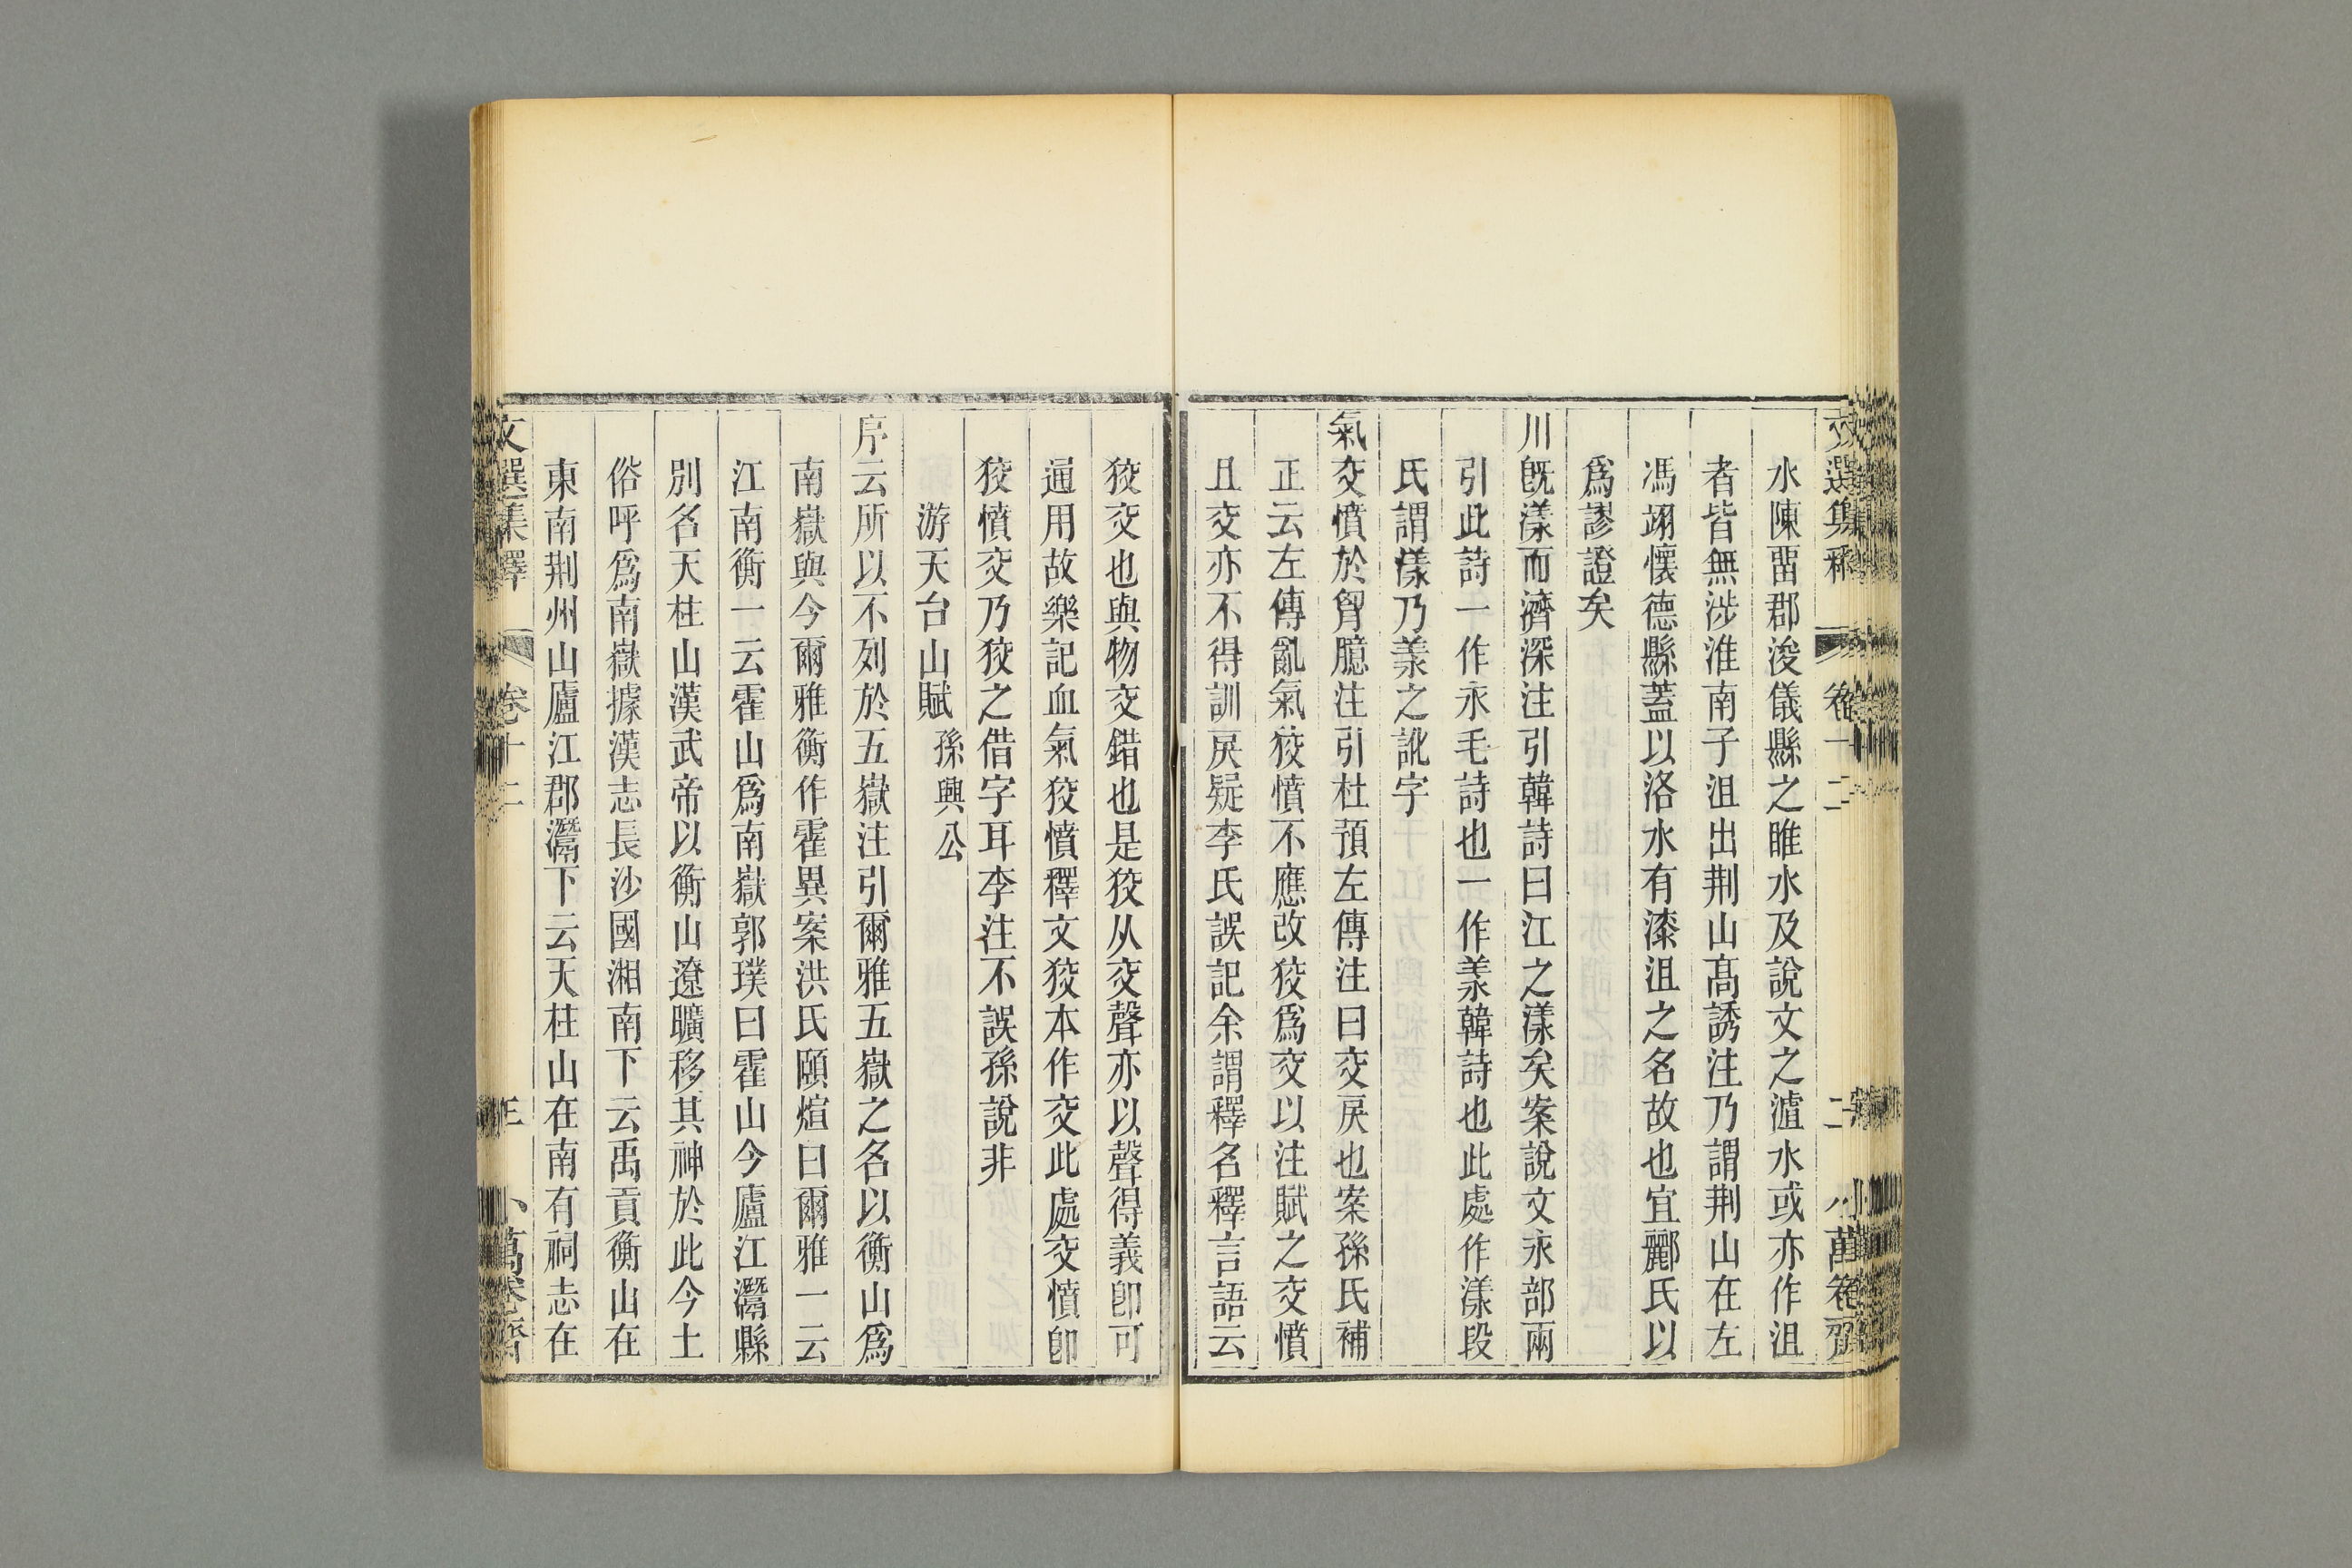 文選集釋 卷十二 二 小萬卷齋
水陳畱郡浚儀縣之睢水及說文之瀘水或亦作沮
者皆無涉淮南子沮出荆山高誘注乃謂荆山在左
馮翊懷德縣蓋以洛水有漆沮之名故也宜酈氏以
爲謬證矣
川旣漾而濟深注引韓詩曰江之漾矣案說文永部兩
引此詩一作永毛詩也一作羕韓詩也此處作漾段
氏謂漾乃羕之訛字
氣交憤於胷臆注引杜預左傳注曰交戾也案孫氏補
正云左傳亂氣狡憤不應改狡爲交以注賦之交憤
且交亦不得訓戾疑李氏誤記余謂釋名釋言語云
狡交也與物交錯也是狡从交聲亦以聲得義卽可
通用故樂記血氣狡憤釋文狡本作交此處交憤卽
狡憤交乃狡之借字耳李注不誤孫說非
游天台山賦 孫興公
序云所以不列於五嶽注引爾雅五嶽之名以衡山爲
南嶽與今爾雅衡作霍異案洪氏頤煊曰爾雅一云
江南衡一云霍山爲南嶽郭璞曰霍山今廬江灊縣
別名天柱山漢武帝以衡山遼曠移其神於此今土
俗呼爲南嶽據漢志長沙國湘南下云禹貢衡山在
東南荆州山廬江郡灊下云天柱山在南有祠志在
文選集釋 卷十二 三 小萬卷齋